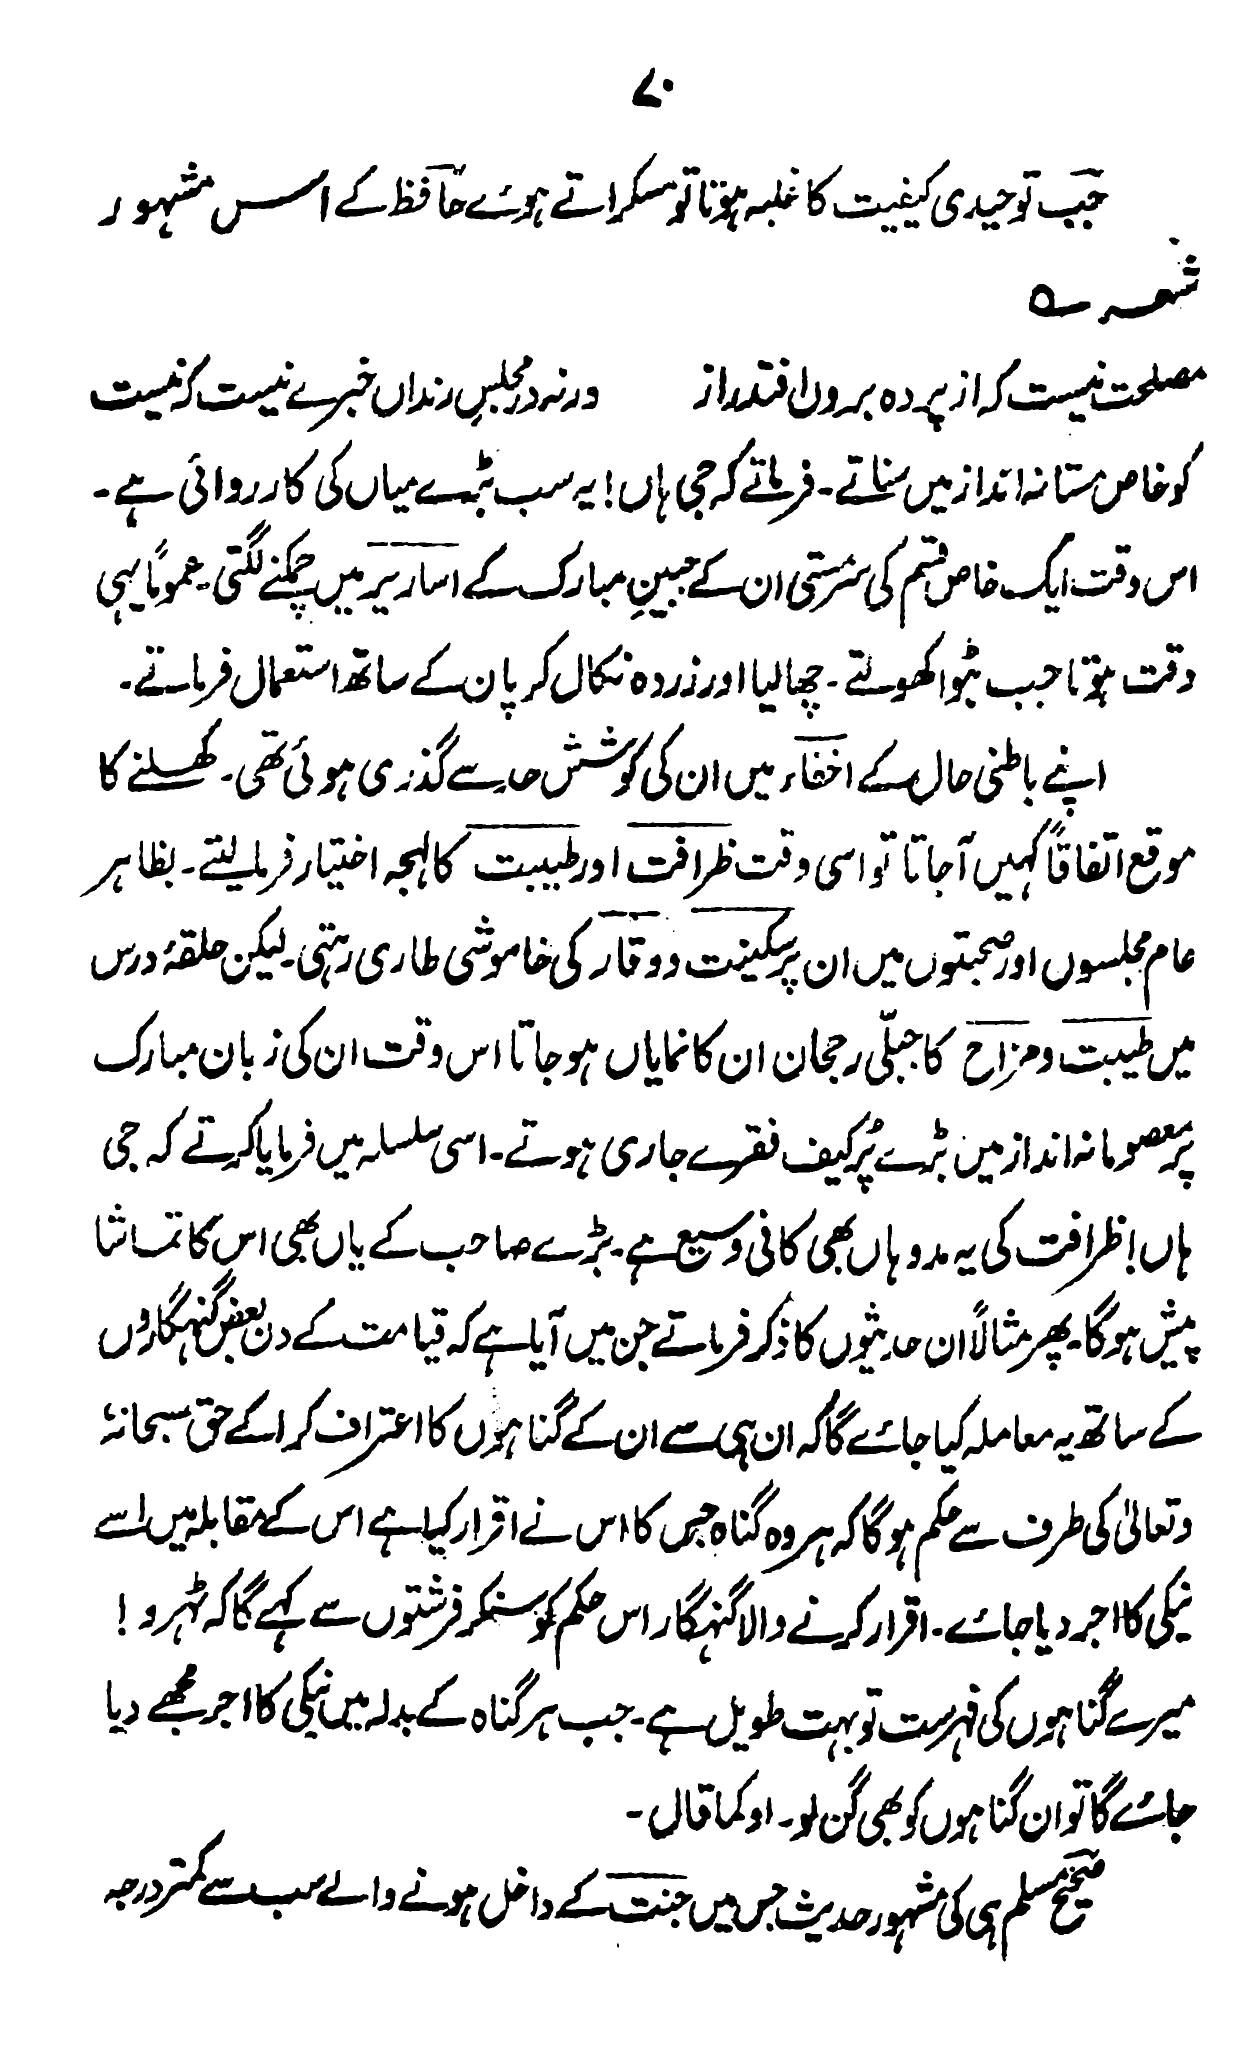 ۷۰
جب توحیدی کیفیت کا غلبہ ہوتا تو مسکراتے ہوئے حافظ کے اس مشہور
شعر ؎
مصلحت نیست کہ از پردہ بروں افتد راز ورنہ در مجلسِ رنداں خبرے نیست کہ نیست
کو خاص مستانہ انداز میں سناتے۔ فرماتے کہ جی ہاں! یہ سب بڑے میاں کی کارروائی ہے۔
اس وقت ایک خاص قسم کی سرمستی ان کے جبینِ مبارک کے اساریر میں چمکنے لگتی۔ عموماً یہی
وقت ہوتا جب بٹوا کھولتے۔ چھالیا اور زردہ نکال کر پان کے ساتھ استعمال فرماتے۔
اپنے باطنی حال کے اخفاء میں ان کی کوشش حد سے گذری ہوئی تھی۔ کھلنے کا
موقع اتفاقاً کہیں آجاتا تو اسی وقت ظرافت اور طیبت کا لہجہ اختیار فرمالیتے۔ بظاہر
عام مجلسوں اور صحبتوں میں ان پر سکینت و وقار کی خاموشی طاری رہتی۔ لیکن حلقۂ درس
میں طیبت و مزاح کا جبلّی رجحان ان کا نمایاں ہوجاتا اس وقت ان کی زبان مبارک
پر معصومانہ انداز میں بڑے پُرکیف فقرے جاری ہوتے۔ اسی سلسلہ میں فرمایا کرتے کہ جی
ہاں! ظرافت کی یہ مد وہاں بھی کافی وسیع ہے۔ بڑے صاحب کے یاں بھی اس کا تماشا
پیش ہوگا۔ پھر مثالاً ان حدیثوں کا ذکر فرماتے جن میں آیا ہے کہ قیامت کے دن بعض گنہگاروں
کے ساتھ یہ معاملہ کیا جائے گا کہ ان ہی سے ان کے گناہوں کا اعتراف کرا کے حق سبحانہٗ
وتعالیٰ کی طرف سے حکم ہوگا کہ ہر وہ گناہ جس کا اس نے اقرار کیا ہے اس کے مقابلہ میں اسے
نیکی کا اجر دیا جائے۔ اقرار کرنے والا گنہگار اس حکم کو سنکر فرشتوں سے کہے گا کہ ٹہرو!
میرے گناہوں کی فہرست تو بہت طویل ہے۔ جب ہر گناہ کے بدلہ میں نیکی کا اجر مجھے دیا
جائے گا تو ان گناہوں کو بھی گن لو۔ او کما قال۔
صحیح مسلم ہی کی مشہور حدیث جس میں جنت کے داخل ہونے والے سب سے کمتر درجہ